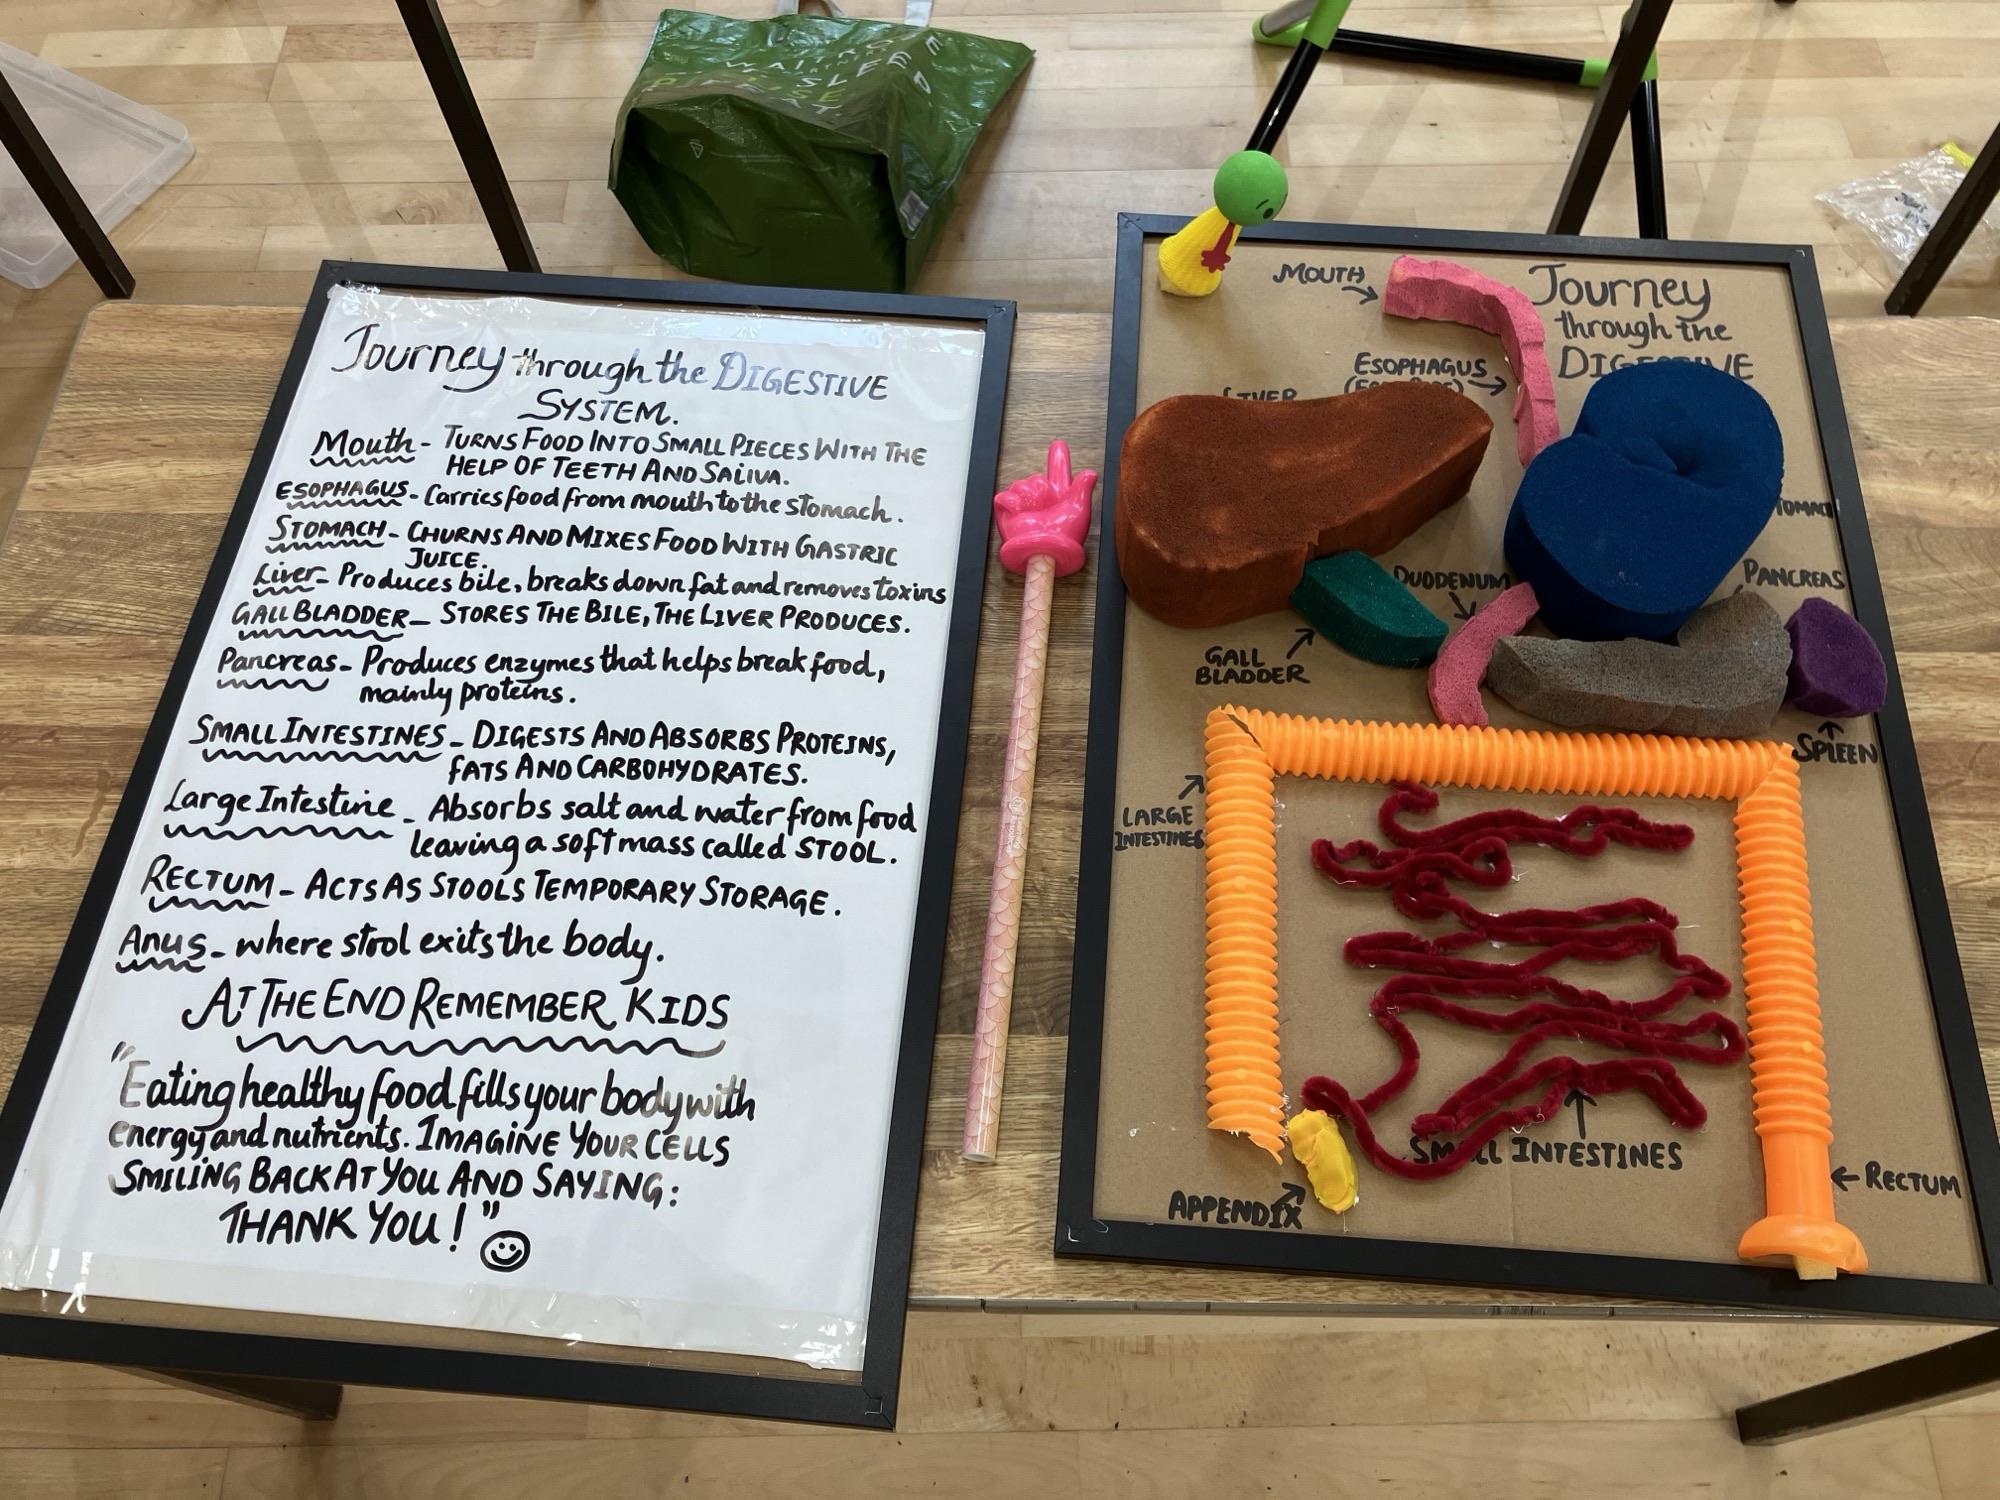 Journey through the DIGESTIVE
SYSTEM.
Mouth - TURNS FOOD INTO SMALL PIECES WITH THE
HELP OF TEETH AND SALIVA.
ESOPHAGUS - Carries food from mouth to the stomach.
STOMACH - CHURNS AND MIXES FOOD WITH GASTRIC
JUICE.
Liver - Produces bile, breaks down fat and removes toxins
GALL BLADDER - STORES THE BILE, THE LIVER PRODUCES.
Pancreas - Produces enzymes that helps break food,
mainly proteins.
SMALL INTESTINES - DIGESTS AND ABSORBS PROTEINS,
FATS AND CARBOHYDRATES.
Large Intestine - Absorbs salt and water from food
leaving a soft mass called STOOL.
RECTUM - ACTS AS STOOLS TEMPORARY STORAGE.
Anus - where stool exits the body.
AT THE END REMEMBER KIDS
"Eating healthy food fills your body with
energy and nutrients. IMAGINE YOUR CELLS
SMILING BACK AT YOU AND SAYING:
THANK YOU!"
MOUTH
Journey
through the
DIGESTIVE
ESOPHAGUS
LIVER
STOMACH
DUODENUM
PANCREAS
GALL
BLADDER
SPLEEN
LARGE
INTESTINES
SMALL INTESTINES
RECTUM
APPENDIX